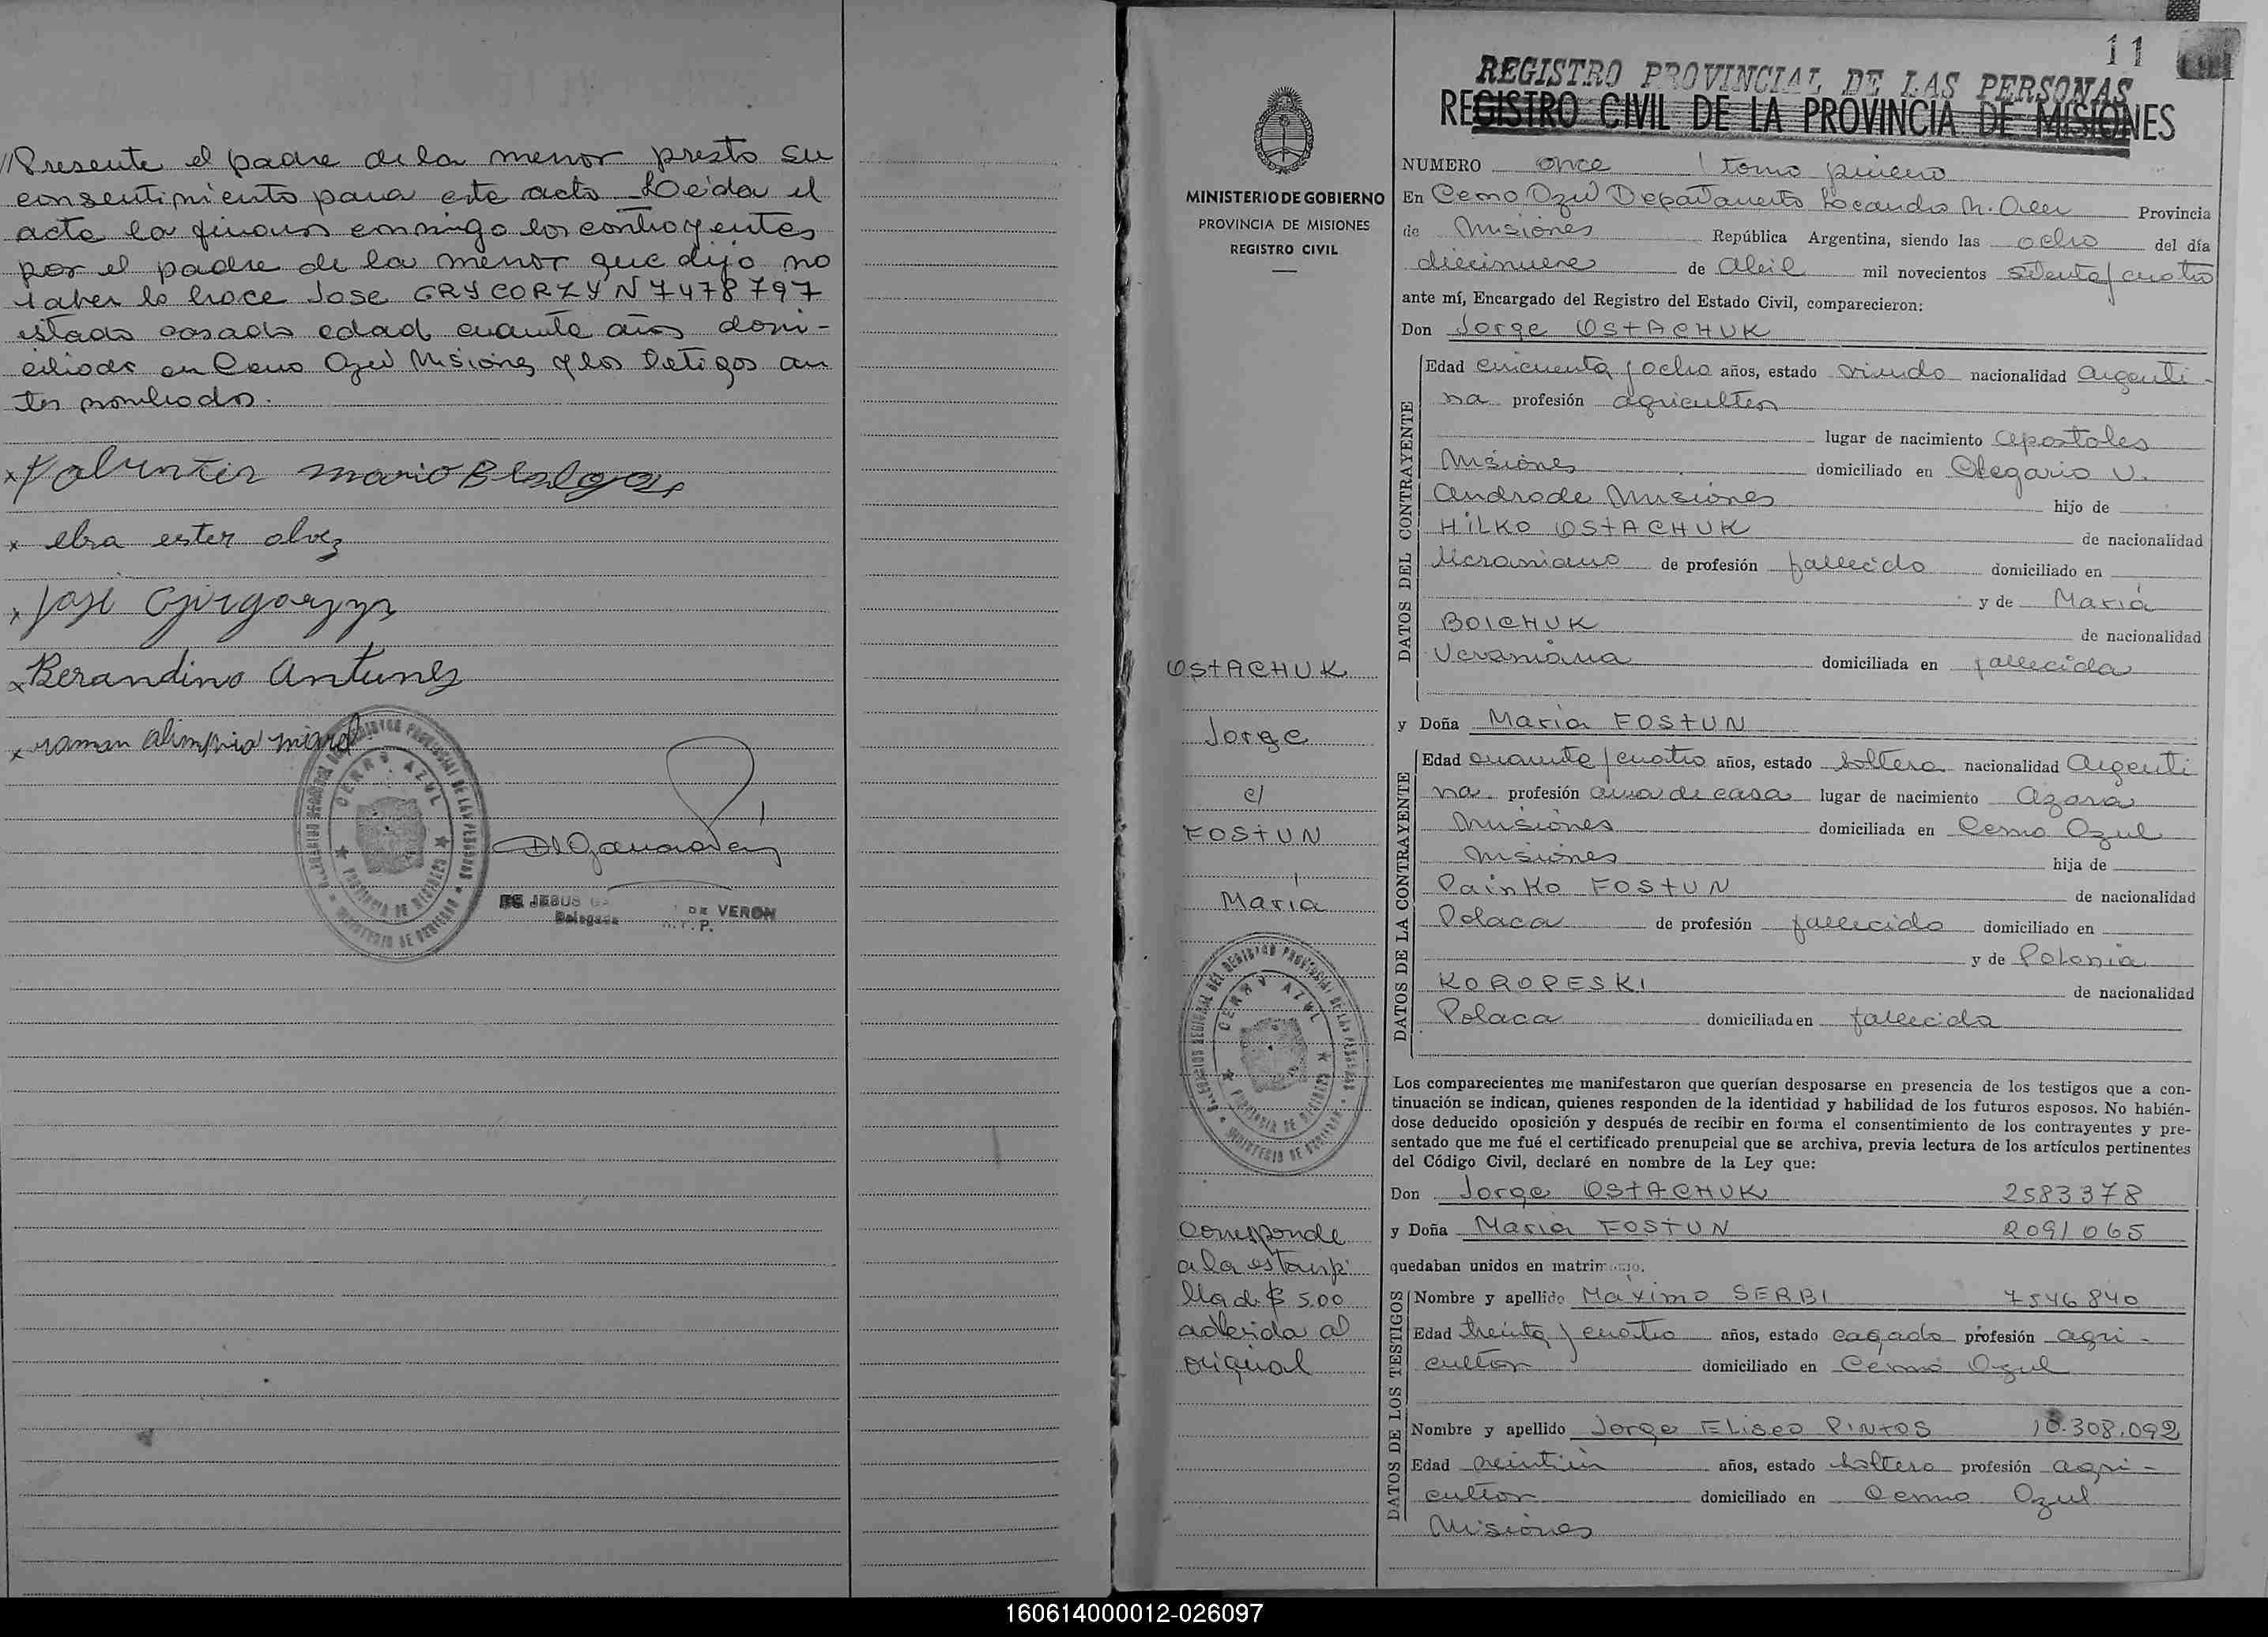 //Presente el padre de la menor presto su
consentimiento para este acto - Leida el
acta la firman conmigo los contrayentes
por el padre de la menor que dijo no
saber lo hace Jose GRYCORZYN 7478797
estado casado edad cuarenta años domi-
ciliado en Cerro Azul Misiones y los testigos an
tes nombrados.
x Valuntin mario B
x elsa ester alvez
x José
x Berandino Antunes
x raman alimpio
CERRO AZUL
PROVINCIA DE MISIONES
MINISTERIO DE GOBIERNO
DE JESUS DE VERON
Delegada R.P.P.
11
REGISTRO PROVINCIAL DE LAS PERSONAS
REGISTRO CIVIL DE LA PROVINCIA DE MISIONES
MINISTERIO DE GOBIERNO
PROVINCIA DE MISIONES
REGISTRO CIVIL
NUMERO once / tomo primero
En Cerro Azul Departamento Leandro N. Alem Provincia
de Misiones República Argentina, siendo las ocho del día
diecinueve de Abril mil novecientos setenta y cuatro
ante mí, Encargado del Registro del Estado Civil, comparecieron:
Don Jorge OSTACHUK
DATOS DEL CONTRAYENTE
Edad cincuenta y ocho años, estado viudo nacionalidad Argenti-
na profesión agricultor
lugar de nacimiento Apostoles
Misiones domiciliado en Olegario V.
Andrade Misiones hijo de
HILKO OSTACHUK de nacionalidad
Ucraniano de profesión fallecido domiciliado en
y de Maria
BOICHUK de nacionalidad
Ucraniana domiciliada en fallecida
y Doña Maria FOSTUN
DATOS DE LA CONTRAYENTE
Edad cuarenta y cuatro años, estado soltera nacionalidad Argenti
na profesión ama de casa lugar de nacimiento Azara
Misiones domiciliada en Cerro Azul
Misiones hija de
Painko FOSTUN de nacionalidad
Polaca de profesión fallecido domiciliado en
y de Polonia
KOROPESKI de nacionalidad
Polaca domiciliada en fallecida
OSTACHUK
Jorge
c/
FOSTUN
Maria
CERRO AZUL
PROVINCIA DE MISIONES
MINISTERIO DE GOBIERNO
Los comparecientes me manifestaron que querían desposarse en presencia de los testigos que a con-
tinuación se indican, quienes responden de la identidad y habilidad de los futuros esposos. No habién-
dose deducido oposición y después de recibir en forma el consentimiento de los contrayentes y pre-
sentado que me fué el certificado prenupcial que se archiva, previa lectura de los artículos pertinentes
del Código Civil, declaré en nombre de la Ley que:
Don Jorge OSTACHUK 2583378
y Doña Maria FOSTUN 2091065
quedaban unidos en matrimonio.
Corresponde
a la estampi
lla de $ 5.00
aderida al
original
DATOS DE LOS TESTIGOS
Nombre y apellido Máximo SERBI 7546840
Edad treinta y cuatro años, estado casado profesión agri-
cultor domiciliado en Cerro Azul
DATOS DE LOS TESTIGOS
Nombre y apellido Jorge Eliseo PINTOS 10.308.092
Edad veintiún años, estado soltero profesión agri-
cultor domiciliado en Cerro Azul
Misiones
160614000012-026097